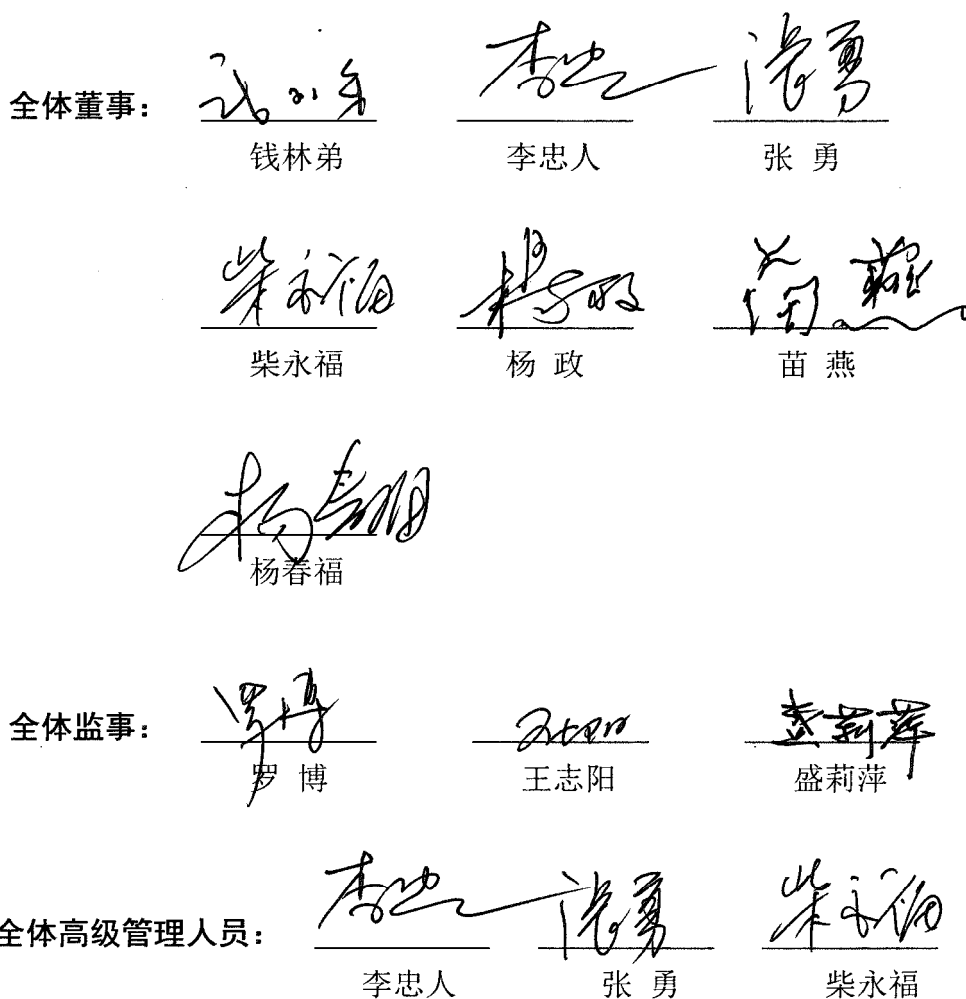 全体董事：
钱林弟 李忠人 张 勇
柴永福 杨 政 苗 燕
杨春福
全体监事：
罗 博 王志阳 盛莉萍
全体高级管理人员：
李忠人 张 勇 柴永福